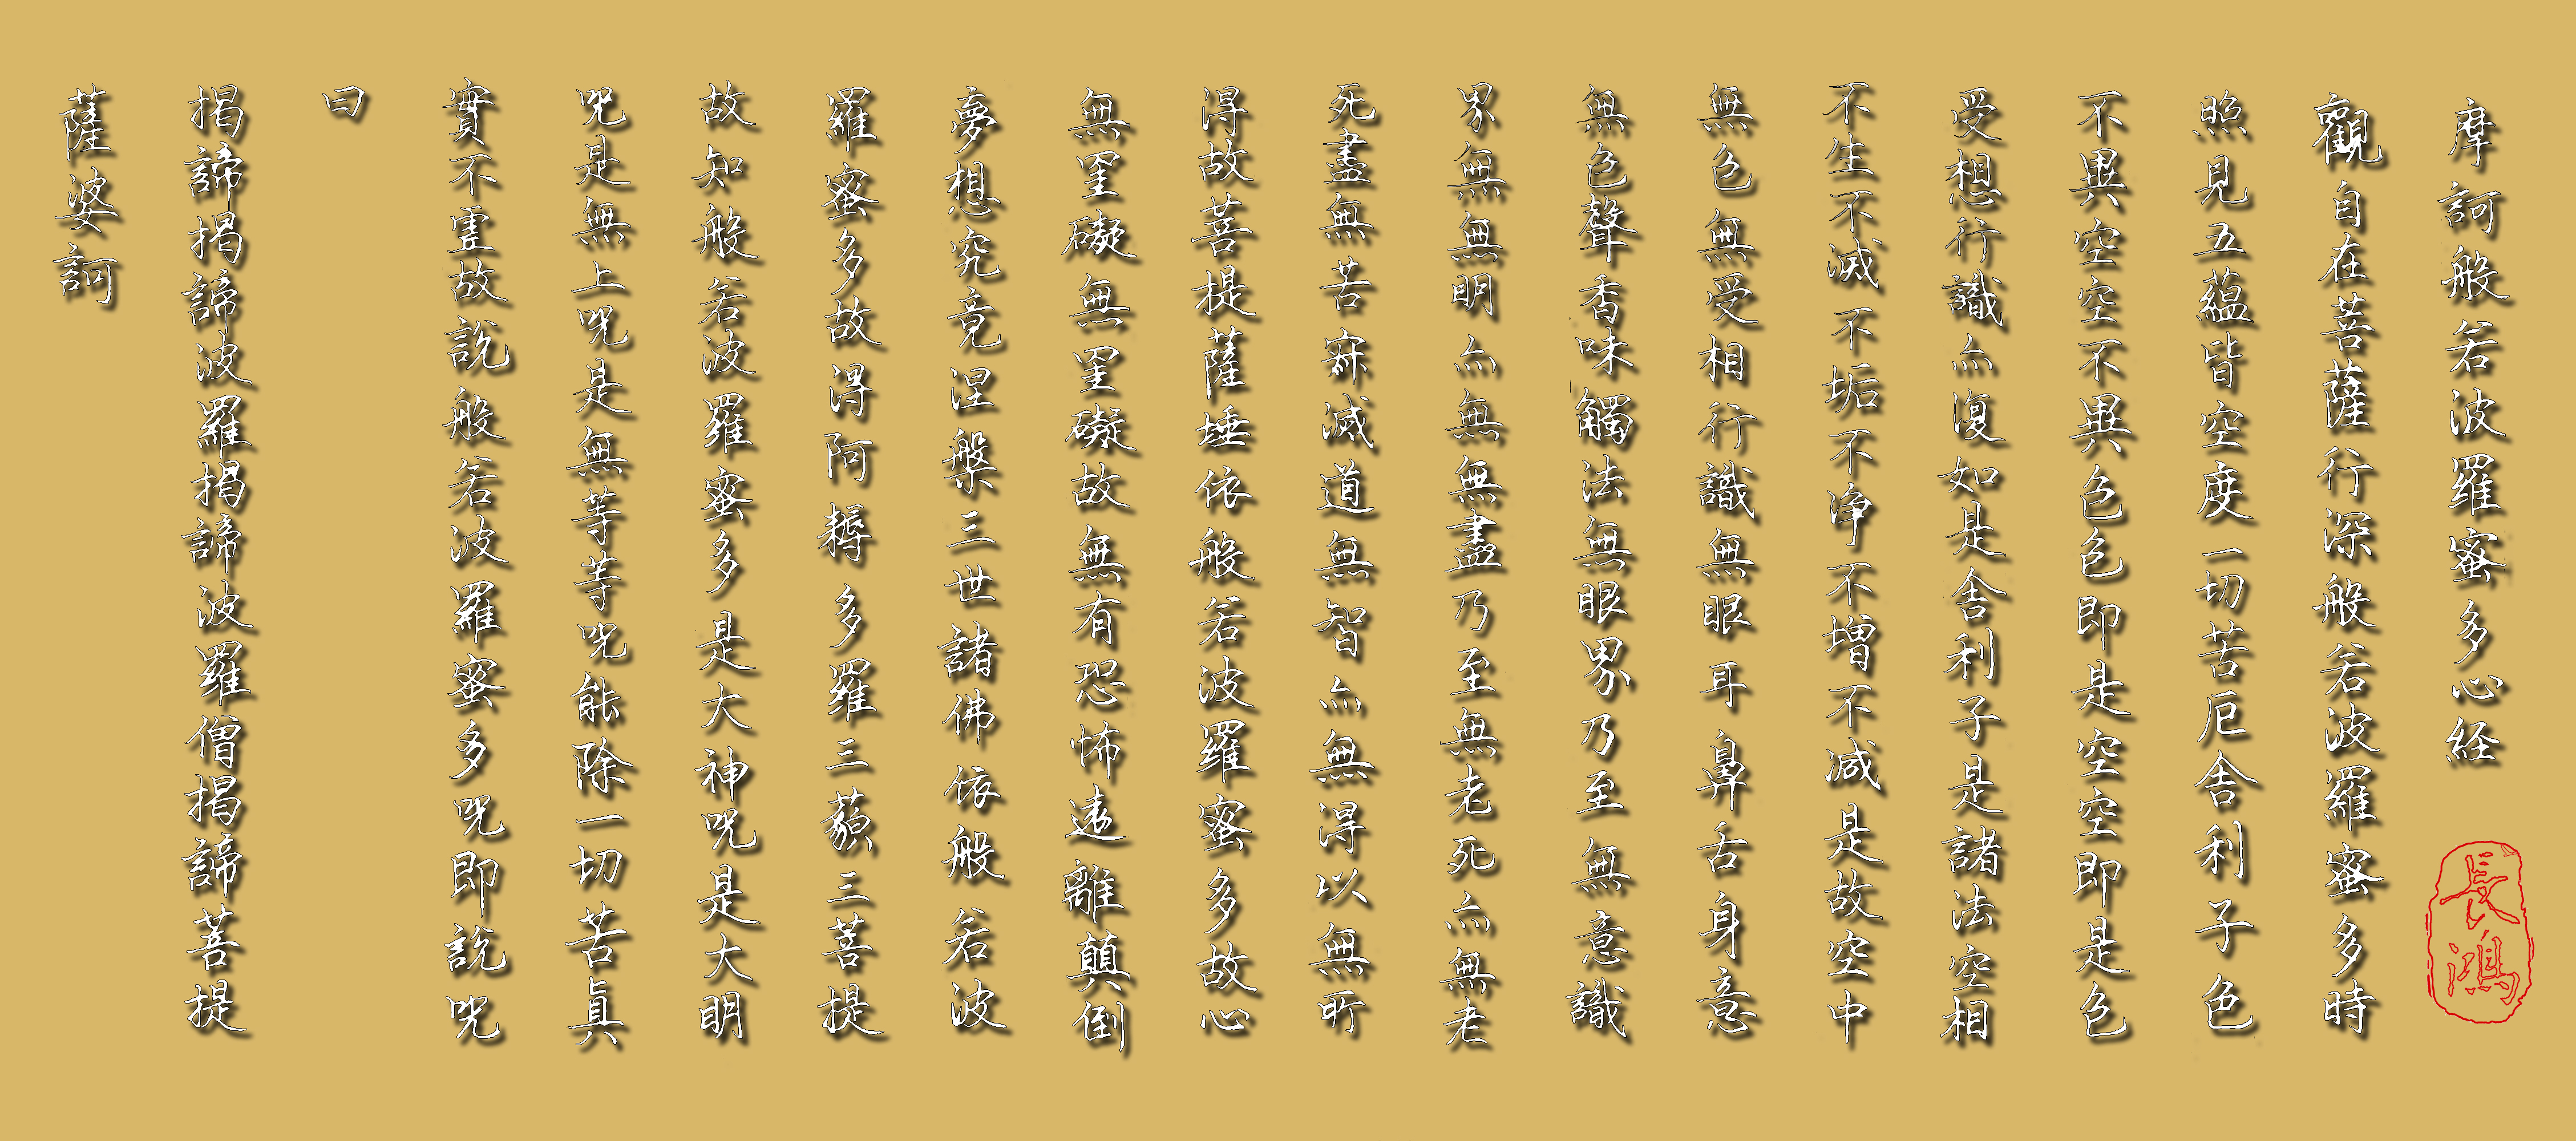 摩訶般若波羅蜜多心経
長鴻
觀自在菩薩行深般若波羅蜜多時
照見五蘊皆空度一切苦厄舎利子色
不異空空不異色色即是空空即是色
受想行識亦復如是舎利子是諸法空相
不生不滅不垢不浄不増不減是故空中
無色無受想行識無眼耳鼻舌身意
無色聲香味觸法無眼界乃至無意識
界無無明亦無無明盡乃至無老死亦無老
死盡無苦寂滅道無智亦無得以無所
得故菩提薩埵依般若波羅蜜多故心
無罣礙無罣礙故無有恐怖遠離顛倒
夢想究竟涅槃三世諸佛依般若波
羅蜜多故得阿耨多羅三藐三菩提
故知般若波羅蜜多是大神呪是大明
呪是無上呪是無等等呪能除一切苦眞
實不虚故説般若波羅蜜多呪即説呪
曰
揭諦揭諦波羅揭諦波羅僧揭諦菩提
薩婆訶